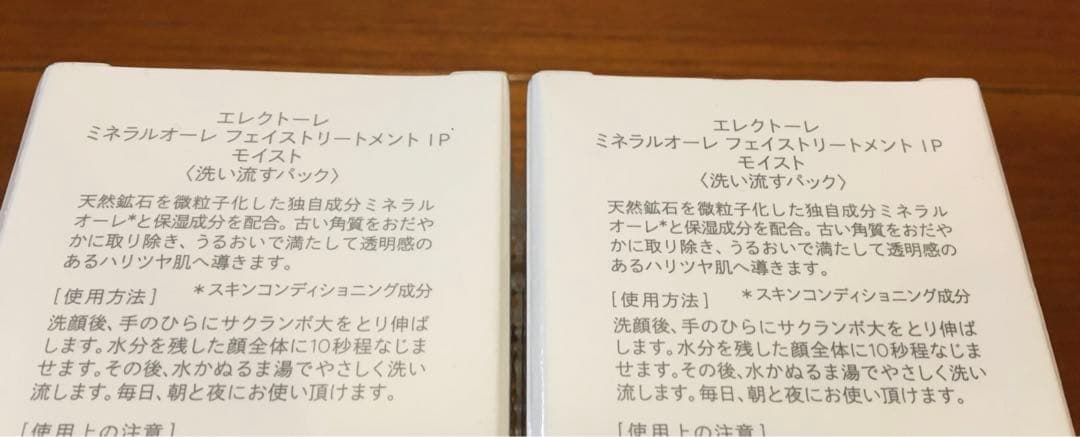 エレクトーレ
ミネラルオーレ フェイストリートメント IP
モイスト
〈洗い流すパック〉
天然鉱石を微粒子化した独自成分ミネラル
オーレ*と保湿成分を配合。古い角質をおだや
かに取り除き、うるおいで満たして透明感の
あるハリツヤ肌へ導きます。
[使用方法] *スキンコンディショニング成分
洗顔後、手のひらにサクランボ大をとり伸ば
します。水分を残した顔全体に10秒程なじま
せます。その後、水かぬるま湯でやさしく洗い
流します。毎日、朝と夜にお使い頂けます。
[使用上の注意]
エレクトーレ
ミネラルオーレ フェイストリートメント IP
モイスト
〈洗い流すパック〉
天然鉱石を微粒子化した独自成分ミネラル
オーレ*と保湿成分を配合。古い角質をおだや
かに取り除き、うるおいで満たして透明感の
あるハリツヤ肌へ導きます。
[使用方法] *スキンコンディショニング成分
洗顔後、手のひらにサクランボ大をとり伸ば
します。水分を残した顔全体に10秒程なじま
せます。その後、水かぬるま湯でやさしく洗い
流します。毎日、朝と夜にお使い頂けます。
[使用上の注意]